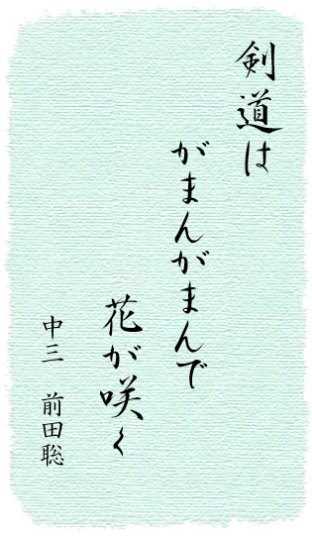 剣道は
がまんがまんで
花が咲く
中三　前田聡